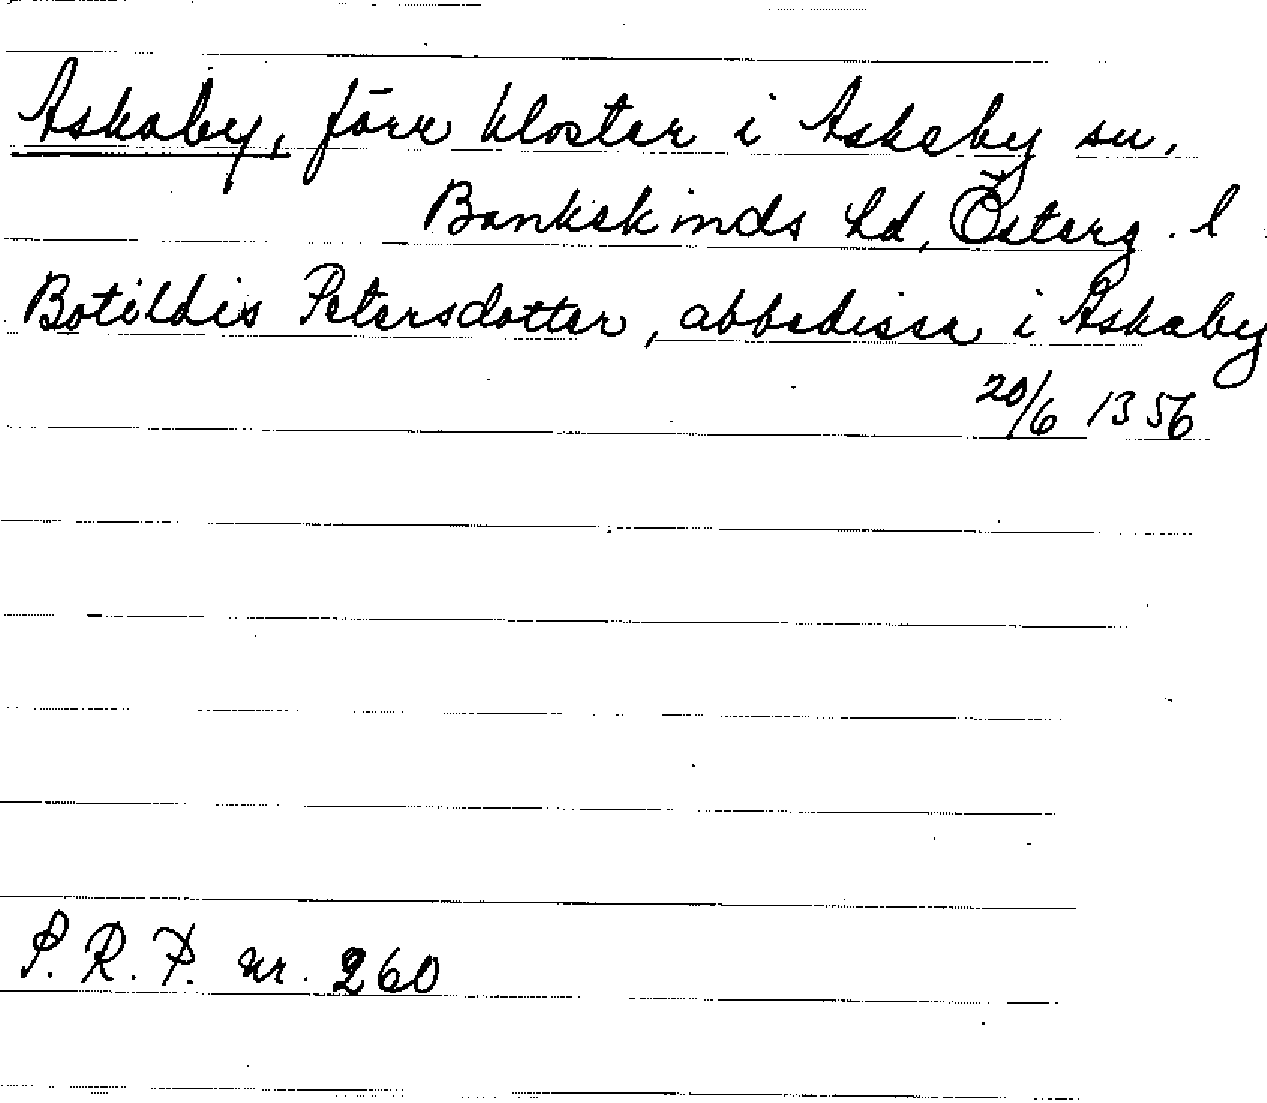 Askaby, förr kloster i Askeby sn,
Bankekinds hd, Österg. l
Botildis Petersdotter, abbedissa i Askaby
20/6 1356
P. R. P. nr. 260